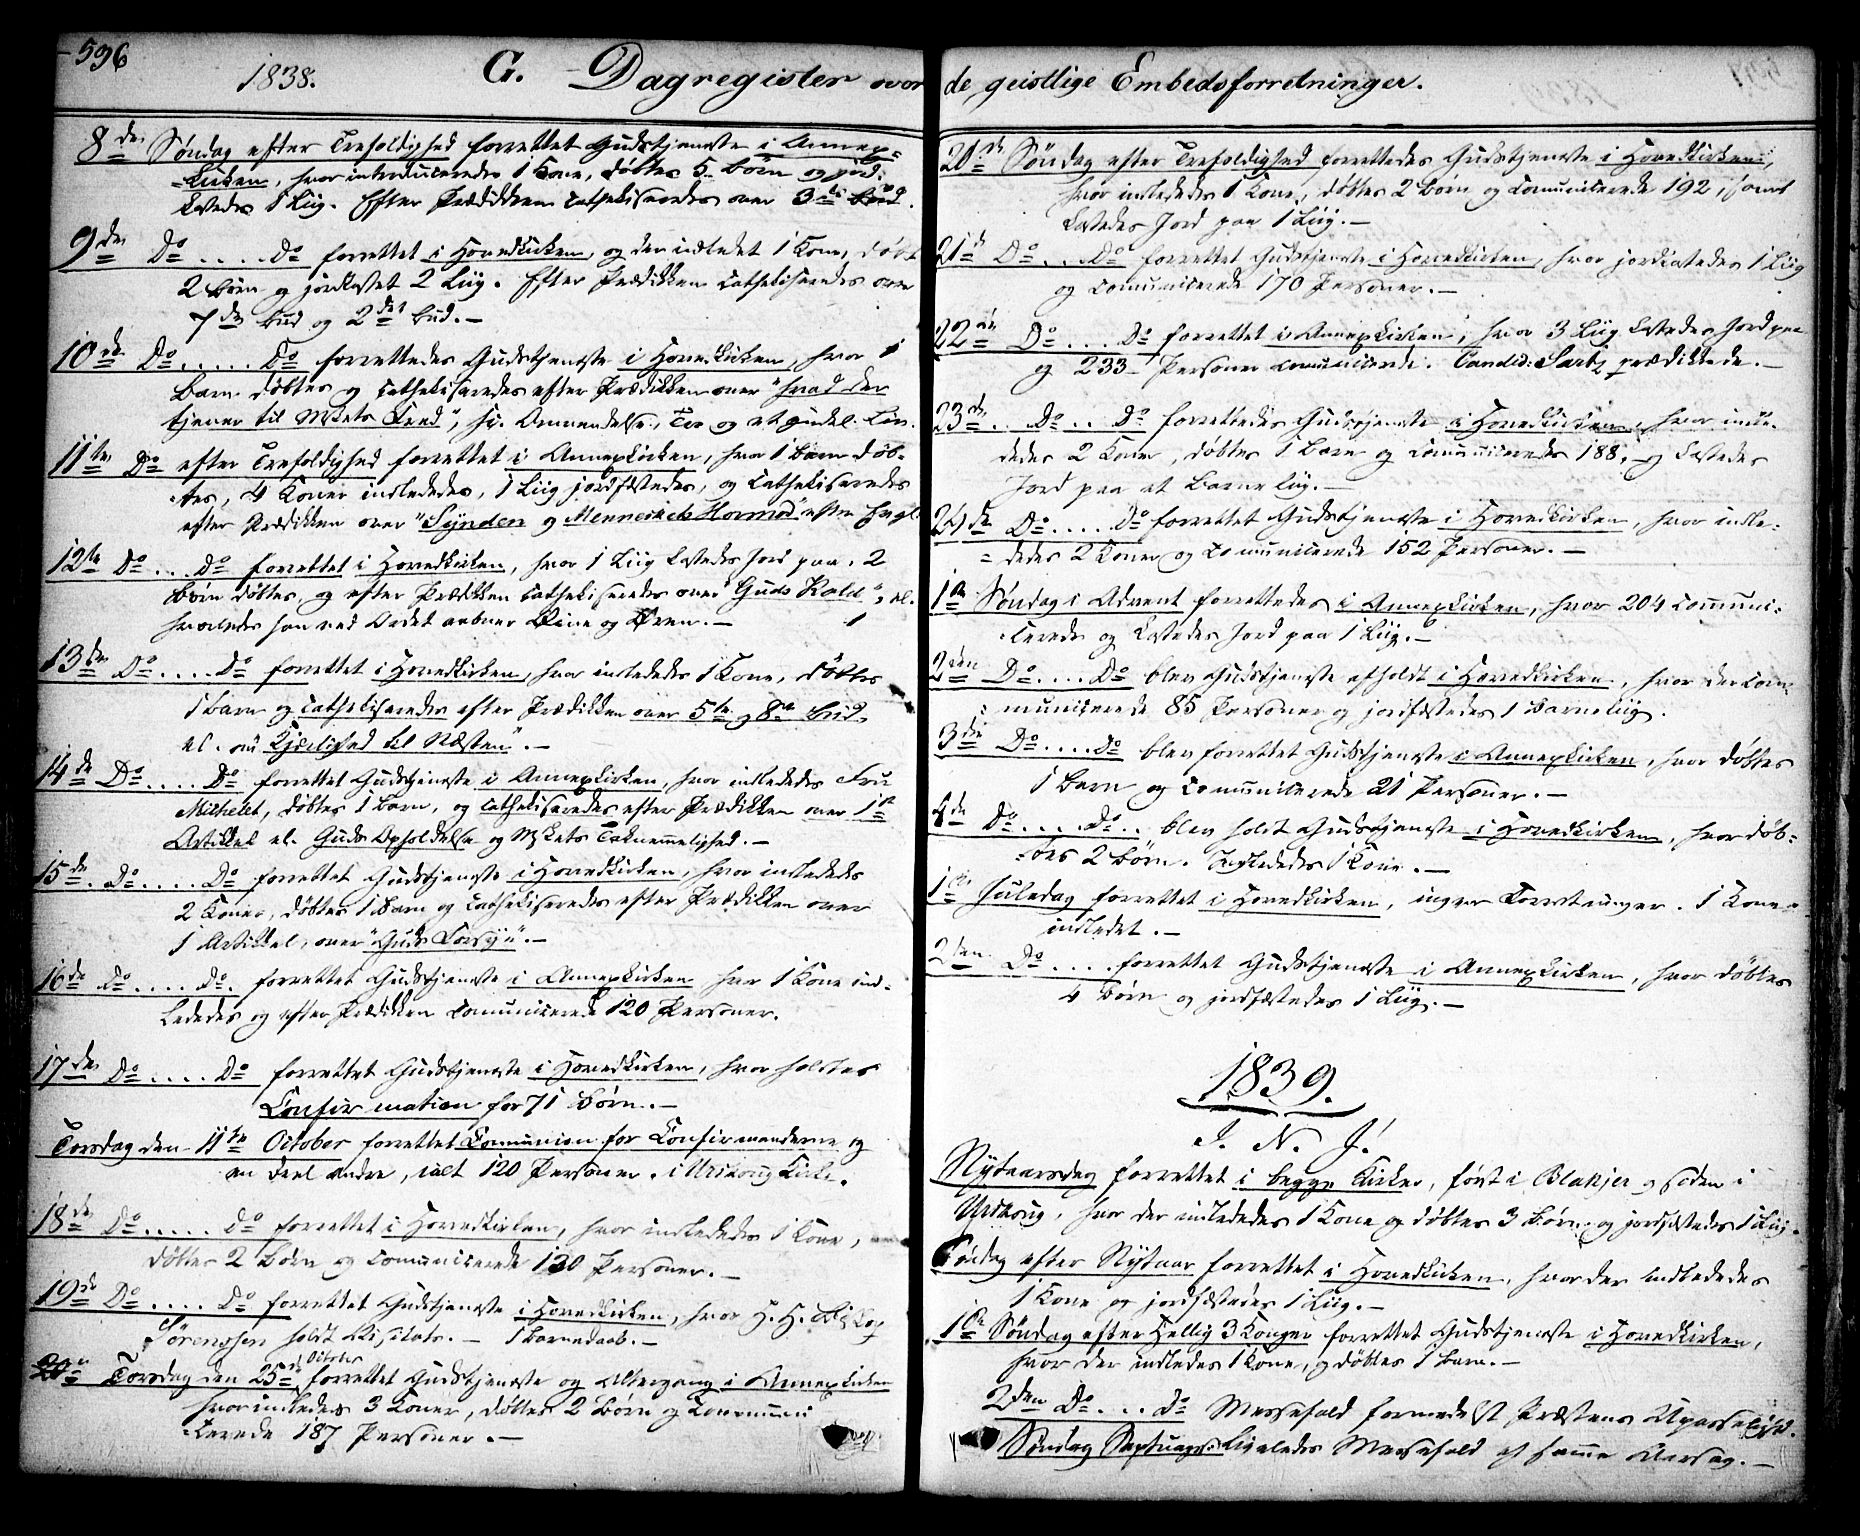 596
1838. G. Dagregister over
8de Søndag efter Trefoldighed forrettet Gudstjeneste i Annex-
-kirken, hvor introduceredes 1 Kone, døbtes 5 Børn og jord-
kastedes 1 Liig. Efter Prædikken cathekiseredes over 3die Bud.
9de Do .... Do forrettet i Hovedkirken, og der indledet 1 Kone, døbt
2 Børn og jordkastet 2 Liig. Efter Prædikken cathekiseredes over
7de Bud og 2det Bud. —
10de Do ..... Do forrettedes Gudstjeneste i Hovedkirken, hvor 1
Barn døbtes og cathekiseredes efter Prædikken over "hvad der
tjener til Mskets Fred", Anvendelse, Troe og et gudel. Lev.
11te Do efter Trefoldighed forrettet i Annexkirken, hvor 1 Barn døb-
-tes, 4 Koner indlededes, 1 Liig jordfæstedes, og cathekiseredes
efter Prædikken over "Synden og Menneskets Hovmod" efter
12te Do ... Do forrettet i Hovedkirken, hvor 1 Liig kastedes Jord paa, 2
Børn døbtes, og efter Prædikken cathekiseredes over "Guds Kald", el.
hvorledes han ved Ordet aabner Øine og Øren. —
13de Do .... Do forrettet i Hovedkirken, hvor indlededes 1 Kone, døbtes
1 Barn og cathekiseredes efter Prædikken over 5te og 8de Bud,
el. om Kjærlighed til Næsten". —
14de Do ..... Do forrettet Gudstjeneste i Annexkirken, hvor indlededes Fru
Michelet, døbtes 1 Barn, og cathekiseredes efter Prædikken over 1ste
Artikkel el. Guds Opholdelse og Mskets Taknemmelighed. —
15de. Do ..... Do forrettet Gudstjeneste i Hovedkirken, hvor indlededes
2 Koner, døbtes 1 Barn og cathekiseredes efter Prædikken over
1 Artikkel, over "Guds Forsyn". —
16de Do .... Do. forrettet Gudstjeneste i Annexkirken hvor 1 Kone ind-
lededes og efter Prædikken communicerede 120 Personer.
17de Do .... Do forrettet Gudstjeneste i Hovedkirken, hvor holdtes
Confirmation for 71 Børn. —
Torsdag den 11te October forrettet Communion for Confirmanderne og
en Deel Andre, ialt 120 Personer. i Urskoug Kirke.
18de Do ..... Do forrettet i Hovedkirken, hvor indlededes 1 Kone,
døbtes 2 Børn og communicerede 130 Personer. —
19de Do ..... Do forrettet Gudstjeneste i Hovedkirken, hvor H. H. Biskop
Sørenssen holdt Visitats. — 1 Barnedaab. —
Torsdag den 25de October forrettet Gudstjeneste og Altergang i Annexkirken
hvor indledes 3 Koner, døbtes 2 Børn og Communi
-cerede 187 Personer. —
de geistlige Embedsforretninger.
20de Søndag efter Trefoldighed forrettedes Gudstjeneste i Hovedkirken,
hvor indlededes 1 Kone, døbtes 2 Børn og communicerede 192, samt
kastedes Jord paa 1 Liig. —
21de Do ... Do forrettet Gudstjeneste i Hovedkirken, hvor jordkastedes 1 Liig
og communicerede 170 Personer. —
22den Do .... Do forrettet i Annexkirken, hvor 3 Liig kastedes Jord paa
og 233 Personer communicerede. Candid: prædikkede. —
23de .. Do .. Do forrettedes Gudstjeneste i Hovedkirken, hvor indle-
dedes 2 Koner, døbtes 1 Barn og communiceredes 188, og kastedes
Jord paa et Barneliig. —
24de Do .... Do forrettet Gudstjeneste i Hovedkirken, hvor indle-
-dedes 2 Koner og communicerede 152 Personer. —
1ste Søndag i Advent forrettedes i Annexkirken, hvor 204 communi-
-cerede og kastedes Jord paa 1 Liig. —
2den Do .... Do blev Gudstjeneste afholdt i Hovedkirken, hvor der com-
-municerede 85 Personer og jordfæstedes 1 Barneliig.
3die Do .... Do blev forrettet Gudstjeneste i Annexkirken, hvor døbtes
1 Barn og communicerede 21 Personer. —
4de Do .... Do .. blev holdt Gudstjeneste i Hovedkirken, hvor døb-
-tes 2 Børn. Indlededes 1 Kone. —
1ste Juledag forrettet i Hovedkirken, ingen Forretninger. 1 Kone
indledet. —
2den Do .... forrettet Gudstjeneste i Annexkirken, hvor døbtes
4 Børn og jordfæstedes 1 Liig. —
1839.
I. N. J.
Nytaarsdag forrettet i begge Kirker, først i Blakjer og siden i
Urskoug, hvor der indlededes 1 Kone og døbtes 3 Børn og jordfæstedes 1 Liig.
Søndag efter Nytaar forrettet i Hovedkirken, hvor der indlededes
1 Kone og jordfæstedes 1 Liig. —
1ste Søndag efter Hellig 3 Konger forrettet Gudstjeneste i Hovedkirken,
hvor der indledes 1 Kone, og døbtes 1 Barn. —
2den Do ... Do Messefald formedelst Præstens Upasselighed.
Søndag Septuages: ligeledes Messefald af samme Aarsag. —